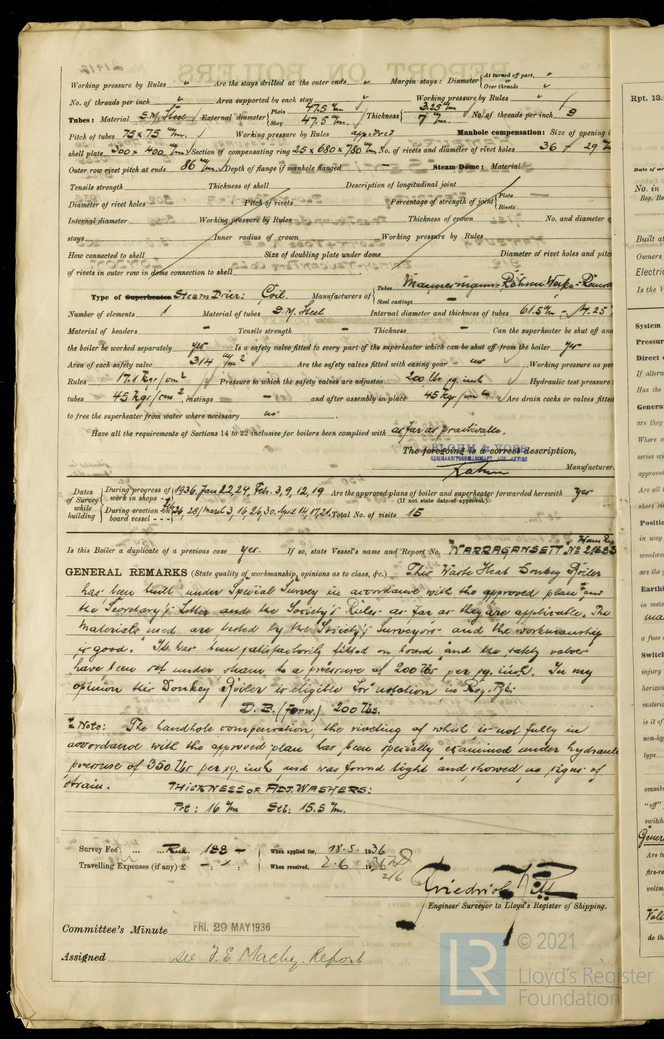 Working pressure by Rules " Are the stays drilled at the outer ends " Margin stays: Diameter { At turned off part, " or Over threads "
No. of threads per inch " Area supported by each stay " Working pressure by Rules "
Tubes: Material S.M. Steel External diameter { Plain 47.5 m/m Stay 47.5 m/m Thickness { 3.25 m/m 7 m/m No. of threads per inch 9
Pitch of tubes 75 x 75 m/m. Working pressure by Rules approved Manhole compensation: Size of opening i
shell plate 300 x 400 m/m Section of compensating ring 25 x 680 x 780 m/m No. of rivets and diameter of rivet holes 36 / 29 m
Outer row rivet pitch at ends 86 m/m. Depth of flange if manhole flanged — Steam Dome: Material
Tensile strength Thickness of shell Description of longitudinal joint
Diameter of rivet holes Pitch of rivets Percentage of strength of joint { Plate Rivets
Internal diameter Working pressure by Rules Thickness of crown No. and diameter o
stays Inner radius of crown Working pressure by Rules
How connected to shell Size of doubling plate under dome Diameter of rivet holes and pitc
of rivets in outer row in dome connection to shell
Type of Superheater Steam Drier: Coil. Manufacturers of { Tubes Mannesmann Röhren Werke - Steel castings —
Number of elements 1 Material of tubes S.M. Steel Internal diameter and thickness of tubes 61.5 m/m - 4.25
Material of headers — Tensile strength — Thickness — Can the superheater be shut off and
the boiler be worked separately yes Is a safety valve fitted to every part of the superheater which can be shut off from the boiler yes
Area of each safety valve 314 m/m² Are the safety valves fitted with easing gear no Working pressure as per
Rules 17.1 kgs/cm² Pressure to which the safety valves are adjusted 200 lbs sq. inch Hydraulic test pressure:
tubes 45 kgs/cm², castings — and after assembly in place 45 kgs/cm² Are drain cocks or valves fitted
to free the superheater from water where necessary no
Have all the requirements of Sections 14 to 22 inclusive for boilers been complied with as far as practicable.
BLOHM & VOSS
The foregoing is a correct description,
Manufacturer.
Dates of Survey while building { During progress of work in shops - - 1936, Jan 22, 24, Feb. 3, 9, 12, 19 Are the approved plans of boiler and superheater forwarded herewith yes
(If not state date of approval.)
During erection on board vessel - - - 26, 28/ March 3, 16, 26, 30, April 14, 17, 21. Total No. of visits 15
Is this Boiler a duplicate of a previous case yes. If so, state Vessel's name and Report No. "NARRAGANSETT" No 21633
GENERAL REMARKS (State quality of workmanship, opinions as to class, &c.) This Waste Heat Donkey Boiler
has been built under Special Survey in accordance with the approved plan and
the Secretary's Letter and the Society's Rules as far as they are applicable. The
materials used are tested by the Society's Surveyors and the workmanship
is good. It has been satisfactorily fitted on board and the safety valves
have been set under steam to a pressure of 200 lbs per sq. inch. In my
opinion this Donkey Boiler is eligible for notation in Reg. Bk:
D.B. (forw) 200 lbs.
Note: The handhole compensation, the riveting of which is not fully in
accordance with the approved plan has been specially examined under hydraul
pressure of 350 lbs per sq. inch and was found tight and showed no signs of
strain. THICKNESS OF ADJ. WASHERS:
Prt: 16 m/m Stb: 15.5 m/m.
Survey Fee ... ... Rm. 188 - When applied for, 18-5-1936
Travelling Expenses (if any) £ - : - : When received, 2-6 1936
2/6
Engineer Surveyor to Lloyd's Register of Shipping.
Committee's Minute FRI. 29 MAY 1936
Assigned see F.E. Machy. Report
© 2021
LR Lloyd's Register
Foundation
Rpt. 13.
Date of wr
No. in
Reg. Bo
Built at
Owners
Electric
Is the V
System
Pressure
Direct
If alter
Has the
Genera
are they
Where
series
approve
Are all
short
Positio
in way
woodwo
are the
Earthi
in meta
a fuse
Switch
injury
horizon
materia
is it of
non-hy
type
omnib
"off"
switch
Gener
Are t
fire-re
voltm
Volt
do th